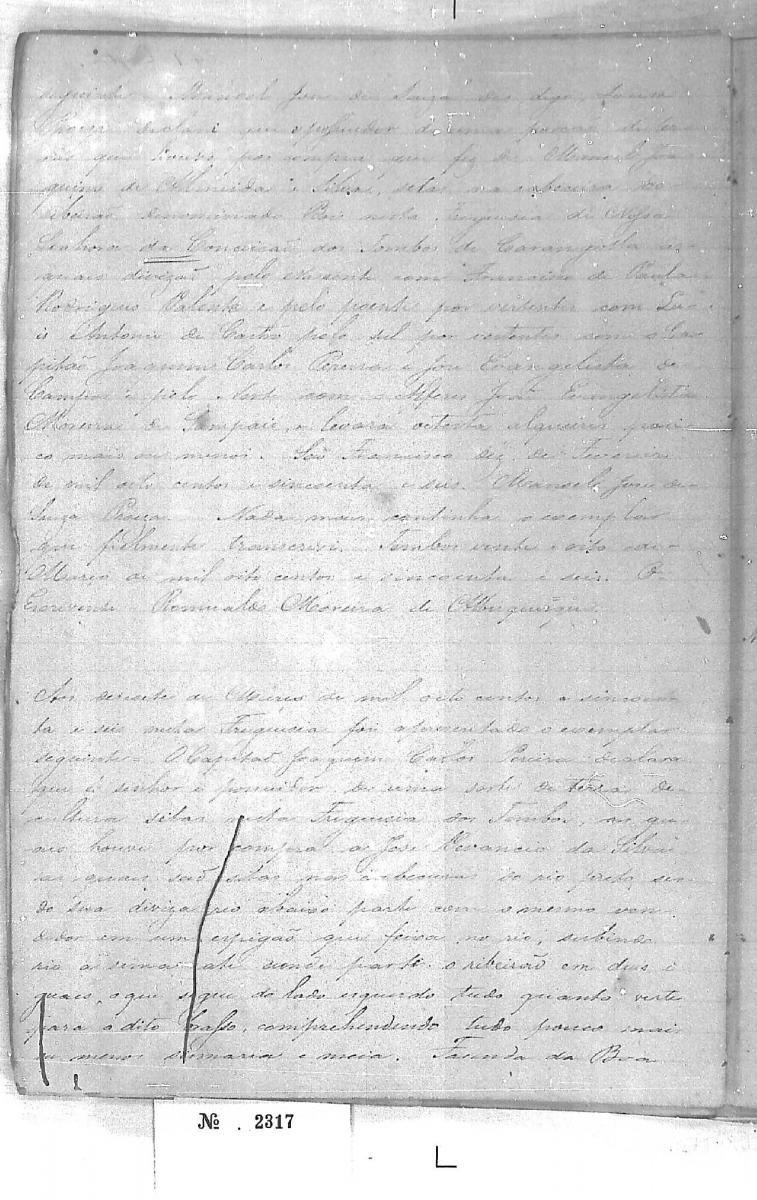 seguinte = Manoel Jose de Souza digo, Souza
declara ser possuidor de uma porção de ter
ras que houve por compra que fez de Manoel Joa
quim de Almeida e Silva, sitas na cabeceira do
ribeirão denominado Boi nesta Freguesia de Nossa
Senhora da Conceição dos Tombos de Carangolla as
quais divizão pelo Nascente com Francisco de Paula
Rodrigues Valente e pelo poente por vertentes com Lu
is Antonio de Castro pelo sul por vertentes com o Ca
pitão Joaquim Carlos Pereira e Jose Evangelista de
Campos e pelo Norte com o Alferes João Evangelista
Moreira de Sampaio, e levará oitenta alqueires pou
co mais ou menos. São Francisco dez de Fevereiro
de mil oito centos e sincoenta e seis. Manoel Jose de
Souza. Nada mais continha o exemplar
que fielmente transcrevi. Tombos vinte e oito de
Março de mil oito centos e sincoenta e seis. O
Escrivente Romualdo Moreira de Albuquerque
Aos desesete de Março de mil oito centos e sincoen
ta e seis nesta Freguesia foi apresentado o exemplar
seguinte = O Capitão Joaquim Carlos Pereira declara
que é senhor e possuidor de uma sorte de terra de
cultura sitas nesta Freguesia dos Tombos, as qu
ais houve por compra a Jose Venancio da Silva
as quais são sitas nas cabeceiras do rio preto, sen
do sua diviza rio abaixo parte com o mesmo ven
dedor em um espigão que feixa no rio, subindo
rio a sima até aonde parte o ribeirão em dois i
guais, o que segue do lado esquerdo tudo quanto verte
para o dito brasso, comprehendendo tudo pouco mais
ou menos sismaria e meia. Fazenda da Boa
Nº . 2317